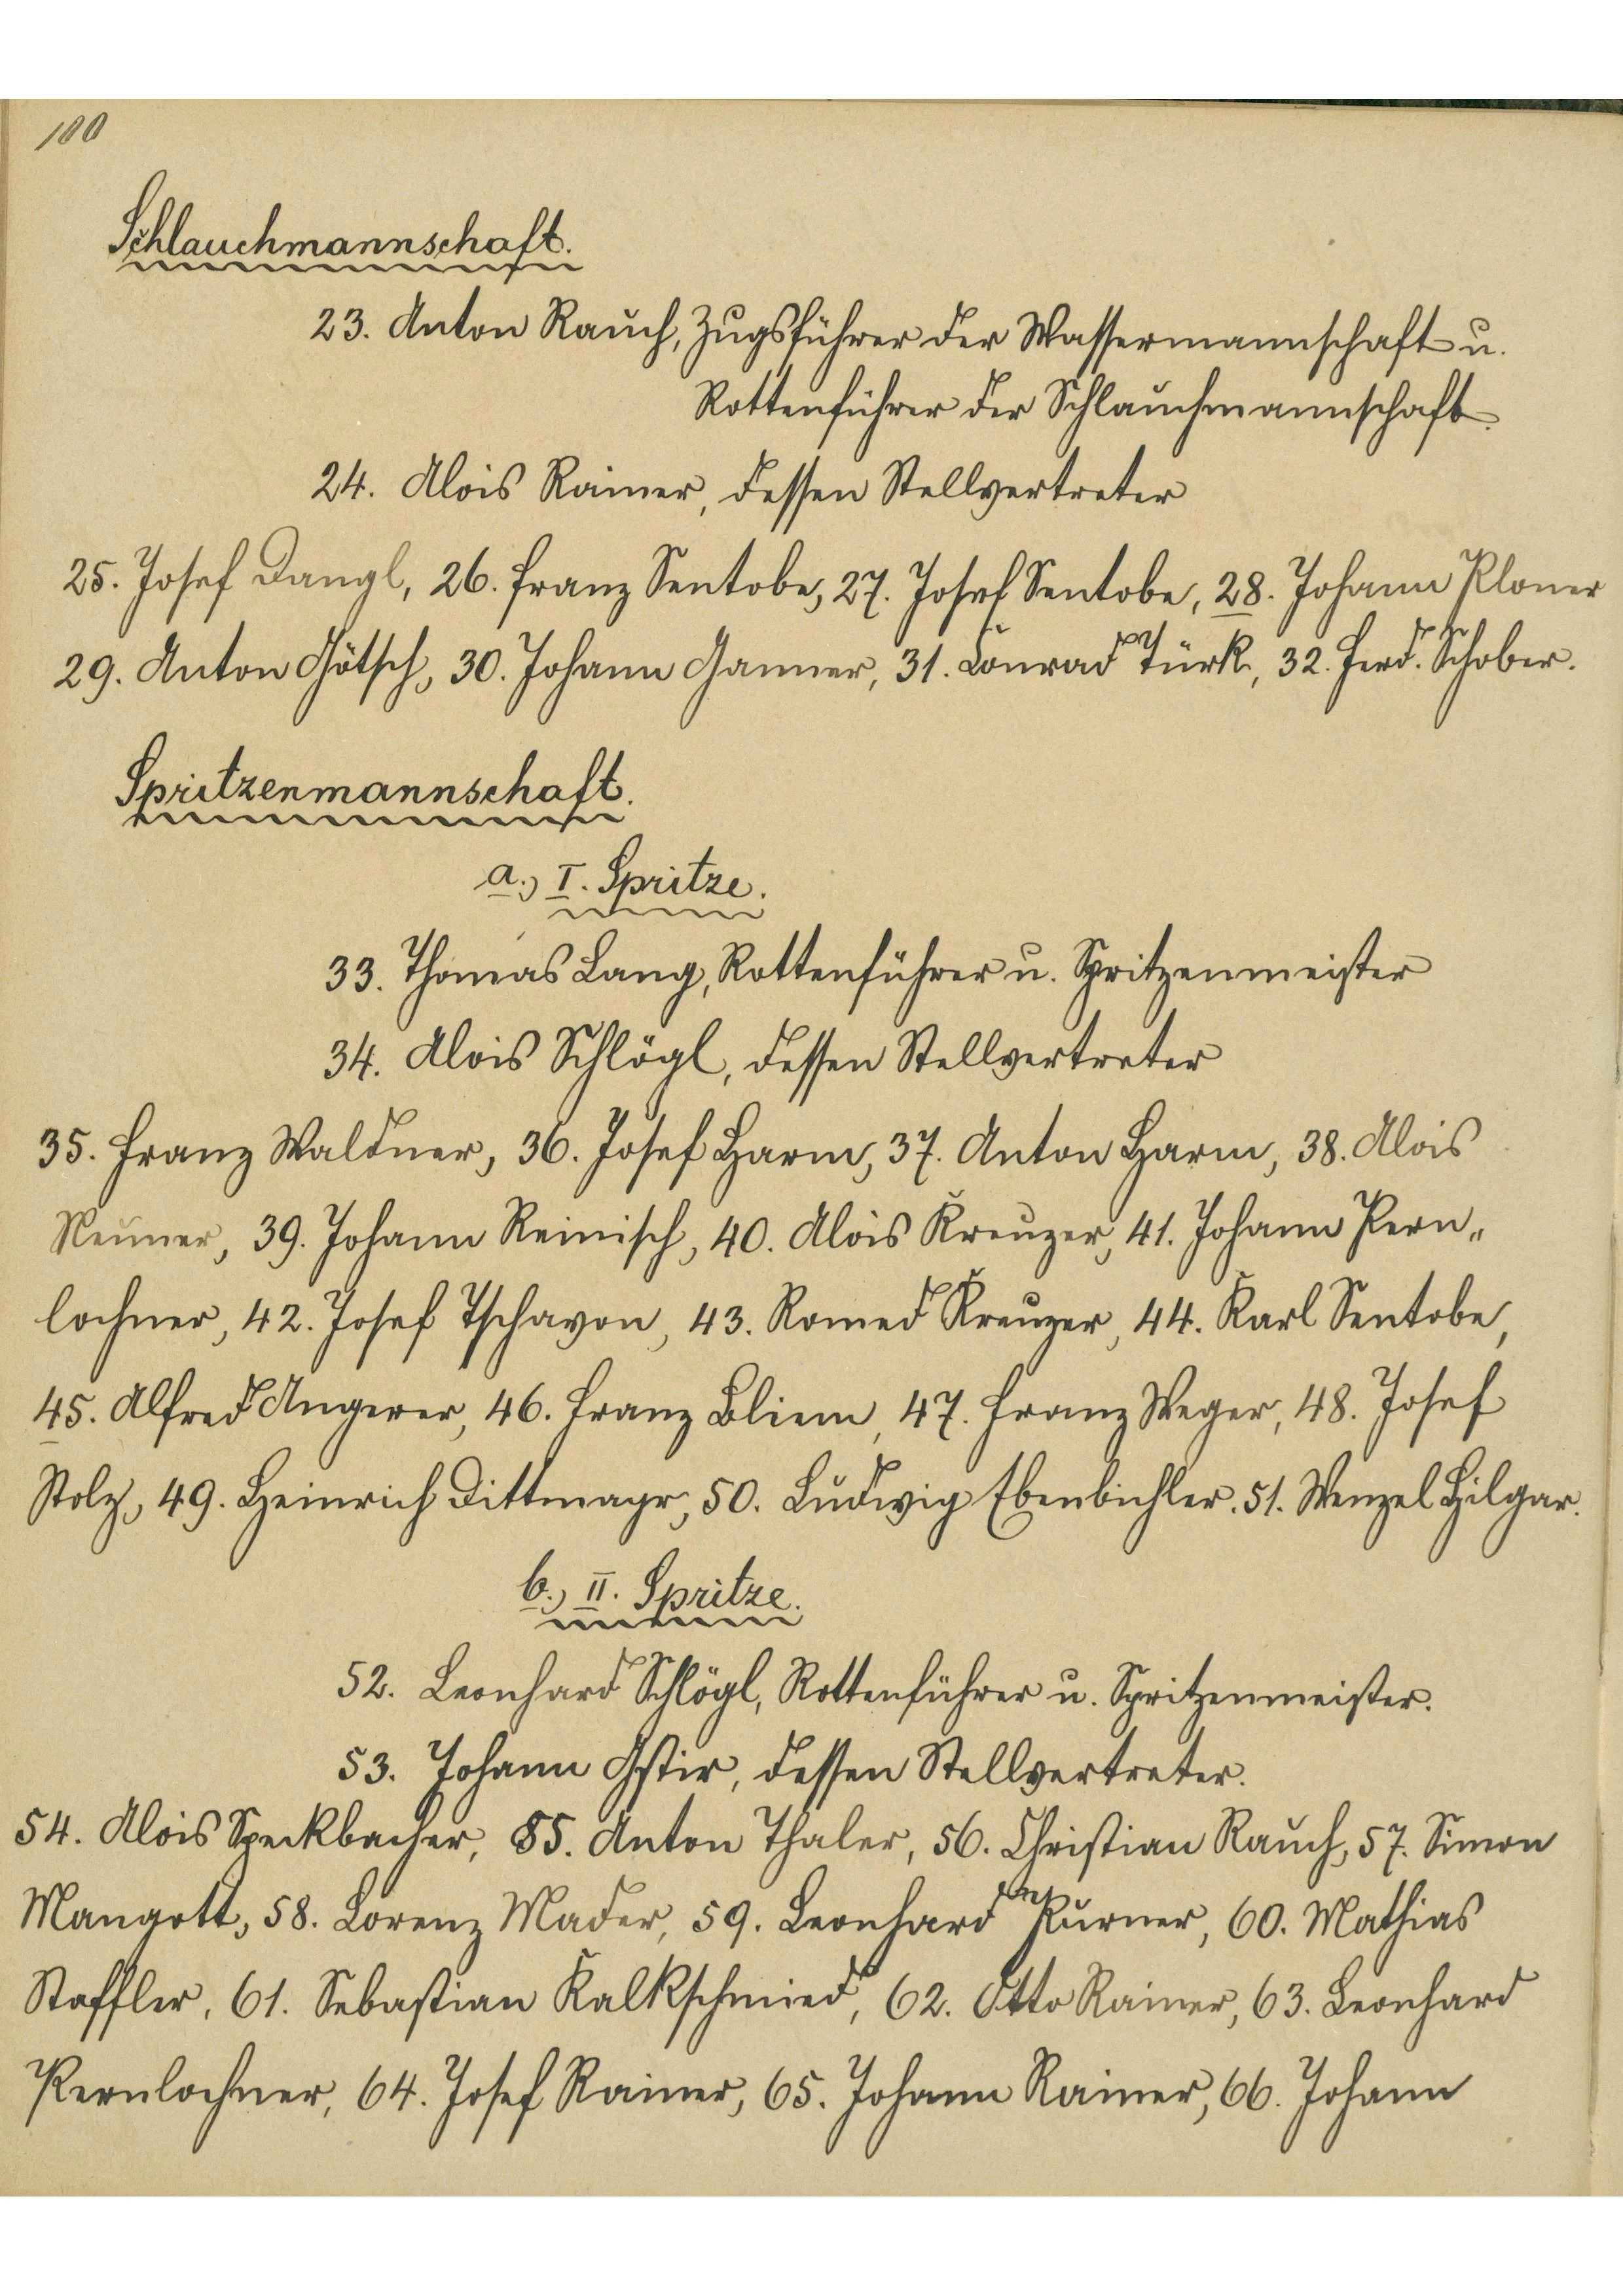 100
Schlauchmannschaft.
23. Anton Rauch, Zugsführer der Wassermannschaft u.
Rottenführer der Schlauchmannschaft.
24. Alois Rainer, dessen Stellvertreter
25. Josef Dangl, 26. Franz Sentobe, 27. Josef Sentobe, 28. Johann Ploner
29. Anton Götsch, 30. Johann Ganner, 31. Conrad Türk, 32. Ferd. Schober.
Spritzenmannschaft.
a.) I. Spritze.
33. Thomas Lang, Rottenführer u. Spritzenmeister
34. Alois Schlögl, dessen Stellvertreter
35. Franz Waldner, 36. Josef Harm, 37. Anton Harm, 38. Alois
Neuner, 39. Johann Reinisch, 40. Alois Kreuzer, 41. Johann Pern„
lochner, 42. Josef Tschavon, 43. Romed Kreuzer, 44. Karl Sentobe,
45. Alfred Angerer, 46. Franz Bliem, 47. Franz Weger, 48. Josef
Stolz, 49. Heinrich Dittmayr, 50. Ludwig Ebenbichler. 51. Wenzel Hilgar.
b.) II. Spritze.
52. Leonhard Schlögl, Rottenführer u. Spritzenmeister.
53. Johann Gstir, dessen Stellvertreter.
54. Alois Speckbacher, 55. Anton Thaler, 56. Christian Rauch, 57. Simon
Mangott, 58. Lorenz Mader, 59. Leonhard Purner, 60. Mathias
Staffler, 61. Sebastian Kalkschmied, 62. Otto Rainer, 63. Leonhard
Pernlochner, 64. Josef Rainer, 65. Johann Rainer, 66. Johann